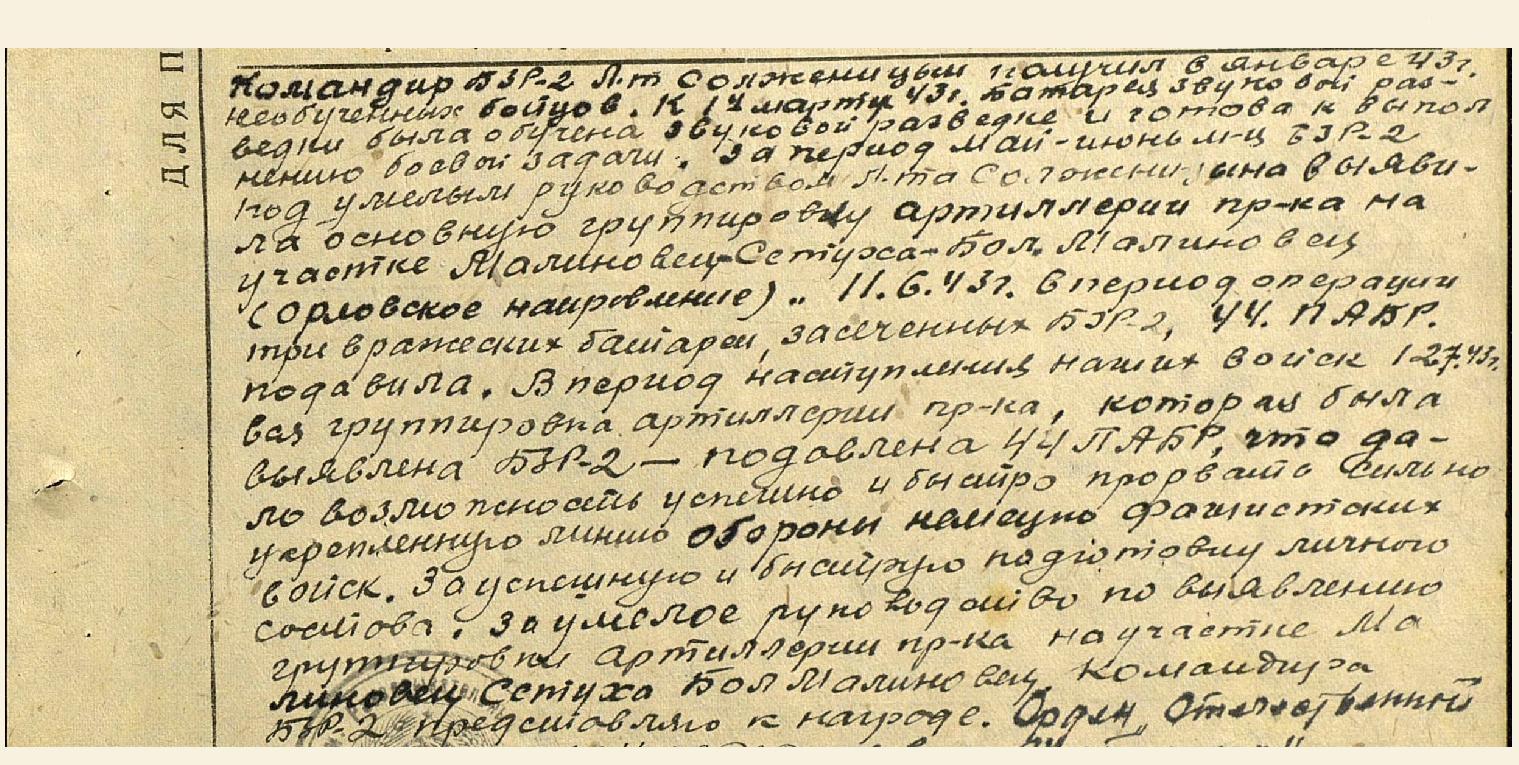 ДЛЯ П
Командир БЗР-2 Л-т Солженицын получил в январе 43г.
необученных бойцов. К 14 марту 43г. батарея звуковой раз-
ведки была обучена звуковой разведке и готова к выпол
нению боевой задачи. За период май-июнь м-ц БЗР-2
под умелым руководством Л-та Солженицына выяви-
ла основную группировку артиллерии пр-ка на
участке Малиновец-Сетуха-Бол. Малиновец
(Орловское напровление).. 11.6.43г. в период операции
три вражеских батареи, засеченных БЗР-2, 44. ПАБР.
подавила. В период наступления наших войск 12.7.43г.
вся группировка артиллерии пр-ка, которая была
выявлена БЗР-2 — подовлена 44 ПАБР, что да-
ло возможность успешно и быстро прорвать сильно
укрепленную линию обороны немецко фашистских
войск. За успешную и быструю подготовку личного
состова. За умелое руководство по выявлению
группировки артиллерии пр-ка на участке Ма
линовец Сетуха Бол Малиновец командира
БЗР-2 предстовляю к награде. Орден Отечественной